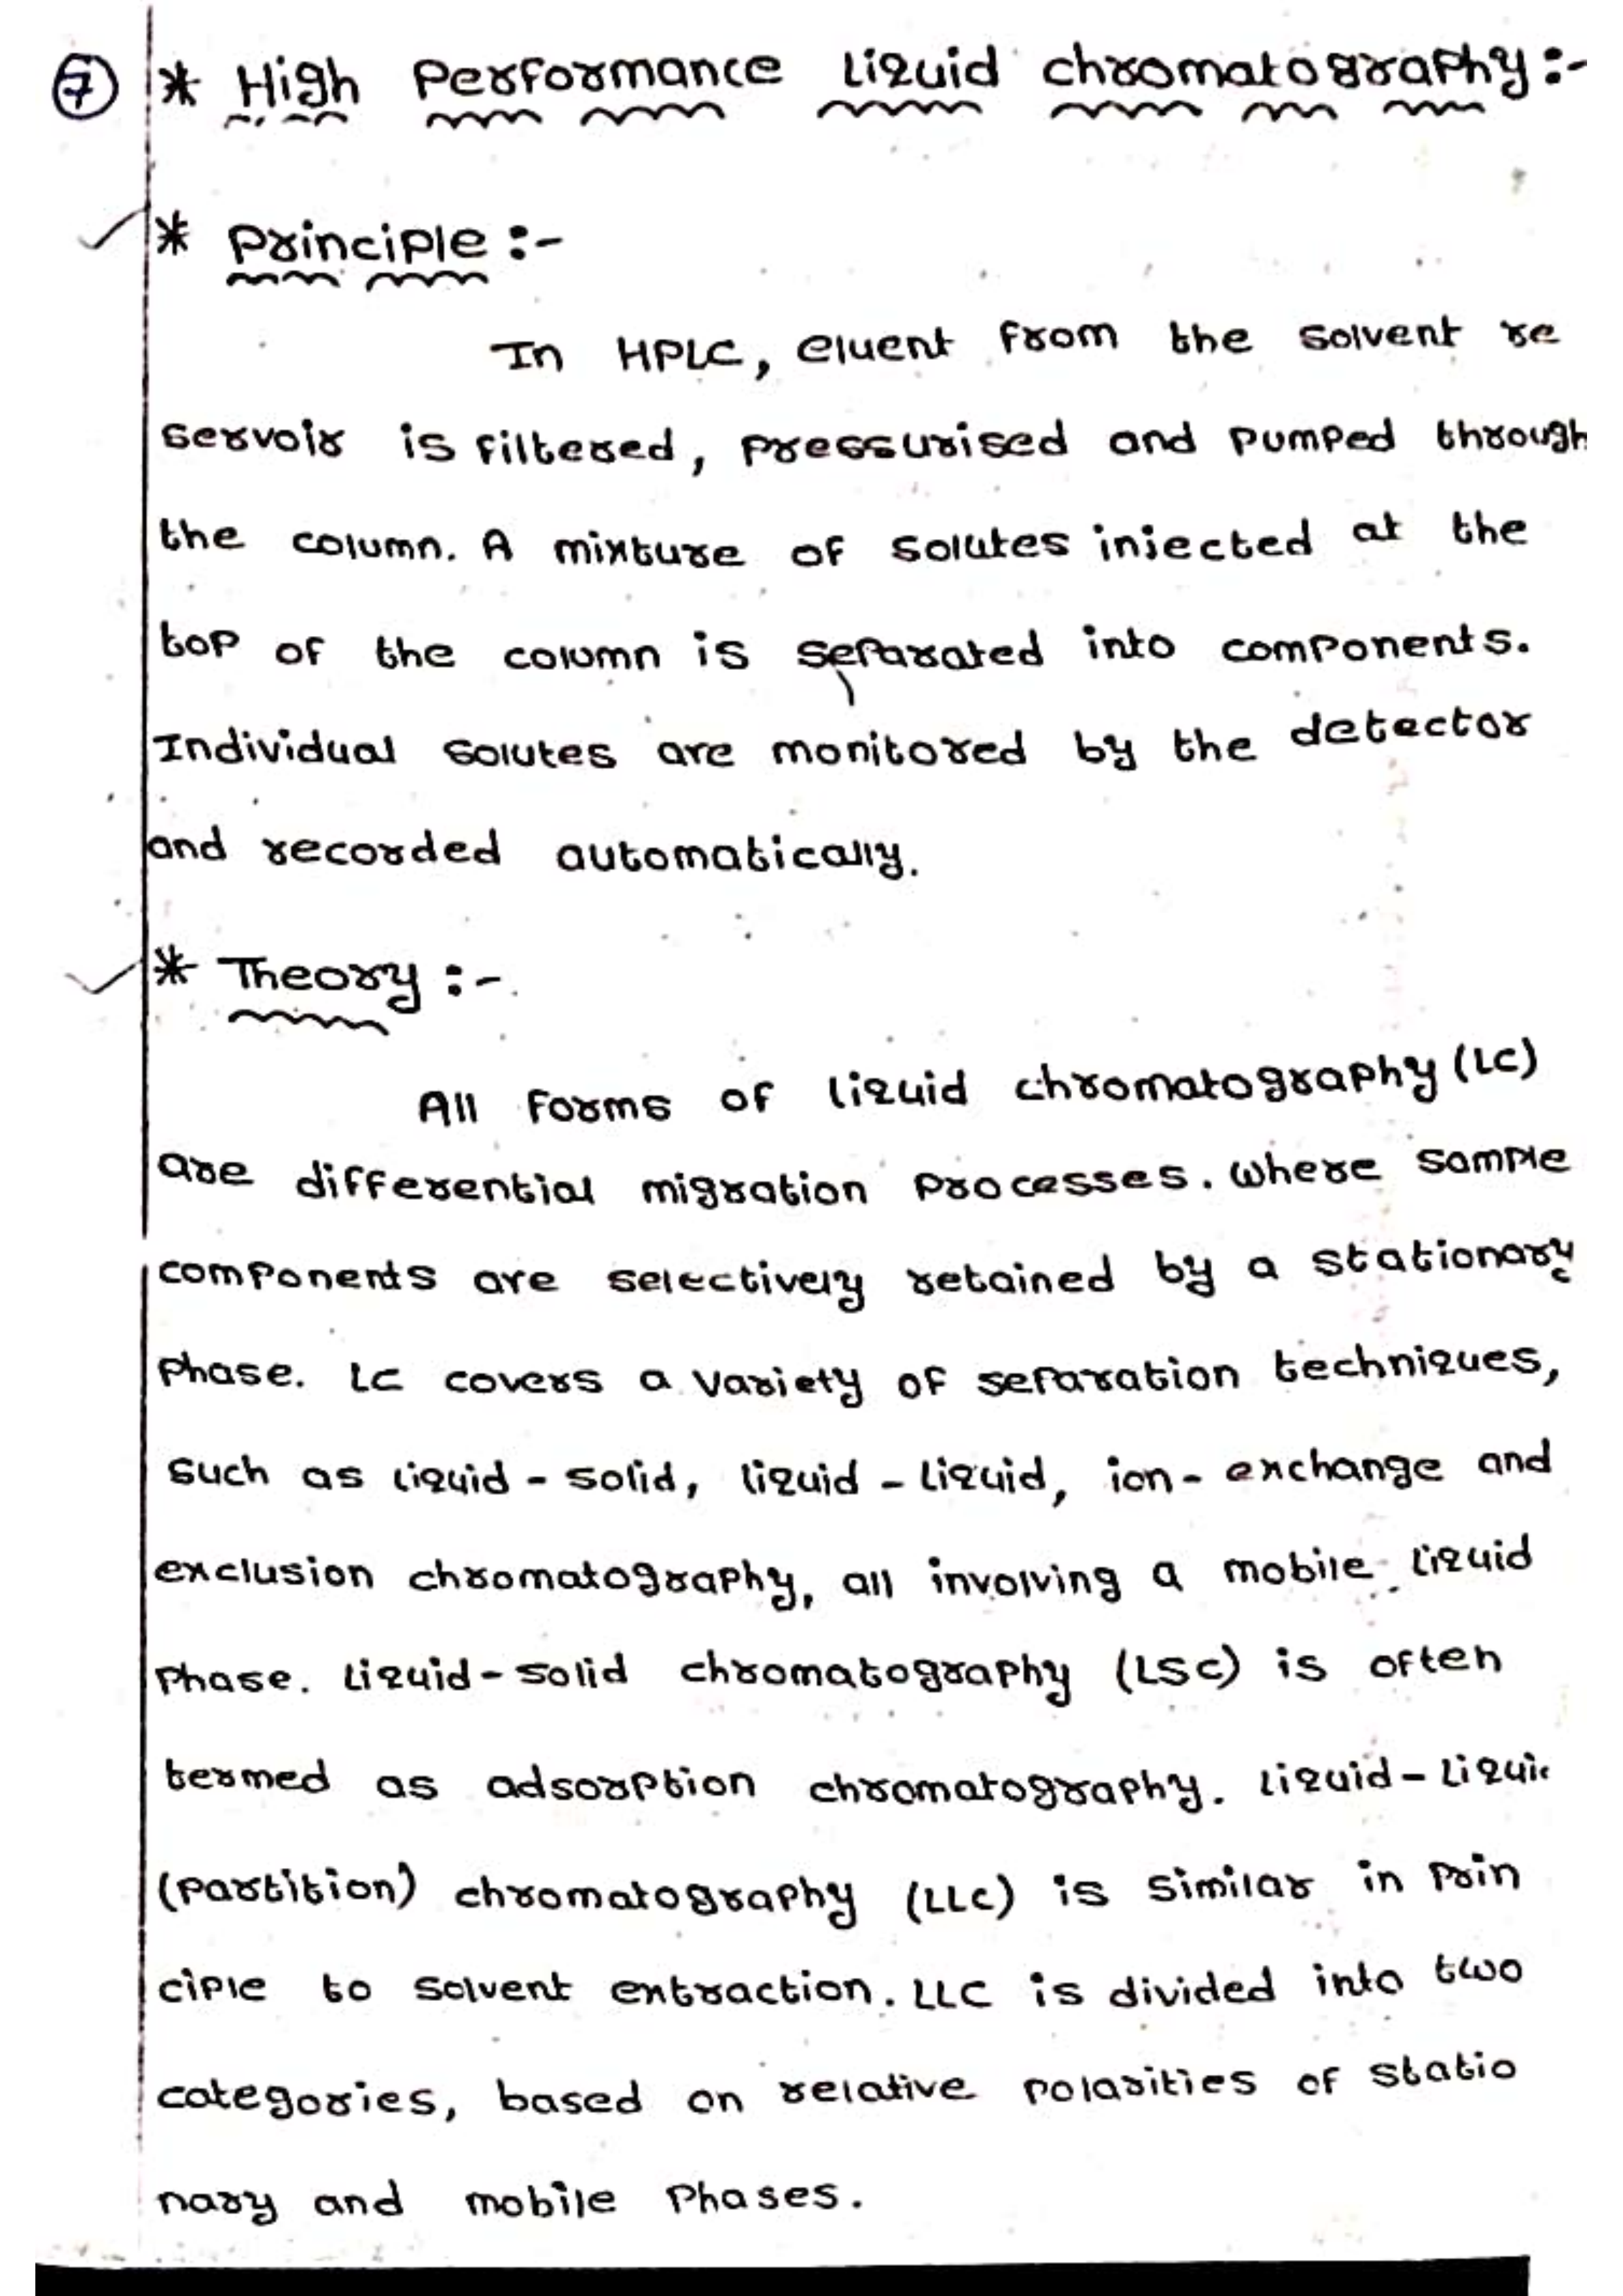 7 * High Performance Liquid chromatography :-
* Principle :-
In HPLC, eluent from the solvent re
servoir is filtered, pressurised and pumped through
the column. A mixture of solutes injected at the
top of the column is separated into components.
Individual solutes are monitored by the detector
and recorded automatically.
* Theory :-
All forms of liquid chromatography (LC)
are differential migration processes. Where sample
components are selectively retained by a stationary
phase. LC covers a variety of separation techniques,
such as liquid - solid, liquid - liquid, ion - exchange and
exclusion chromatography, all involving a mobile liquid
phase. Liquid - solid chromatography (LSC) is often
termed as adsorption chromatography. Liquid - Liqui
(partition) chromatography (LLC) is similar in prin
ciple to solvent extraction. LLC is divided into two
categories, based on relative polarities of statio
nary and mobile phases.